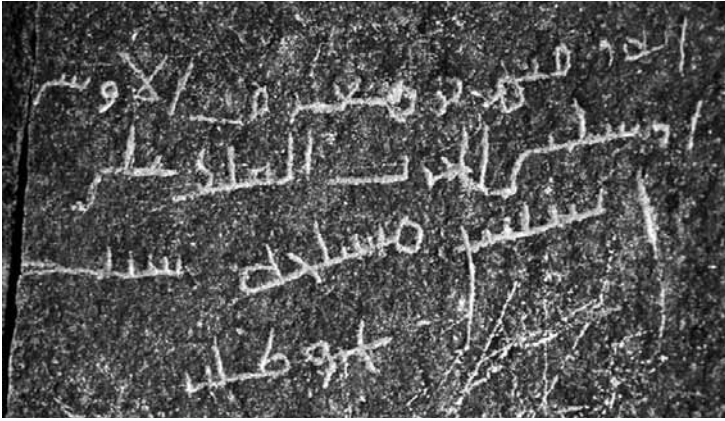 انه رقيم بر معرف الاوسي
ارسلني الحرث الملك على
اسيس مسلحه سنت